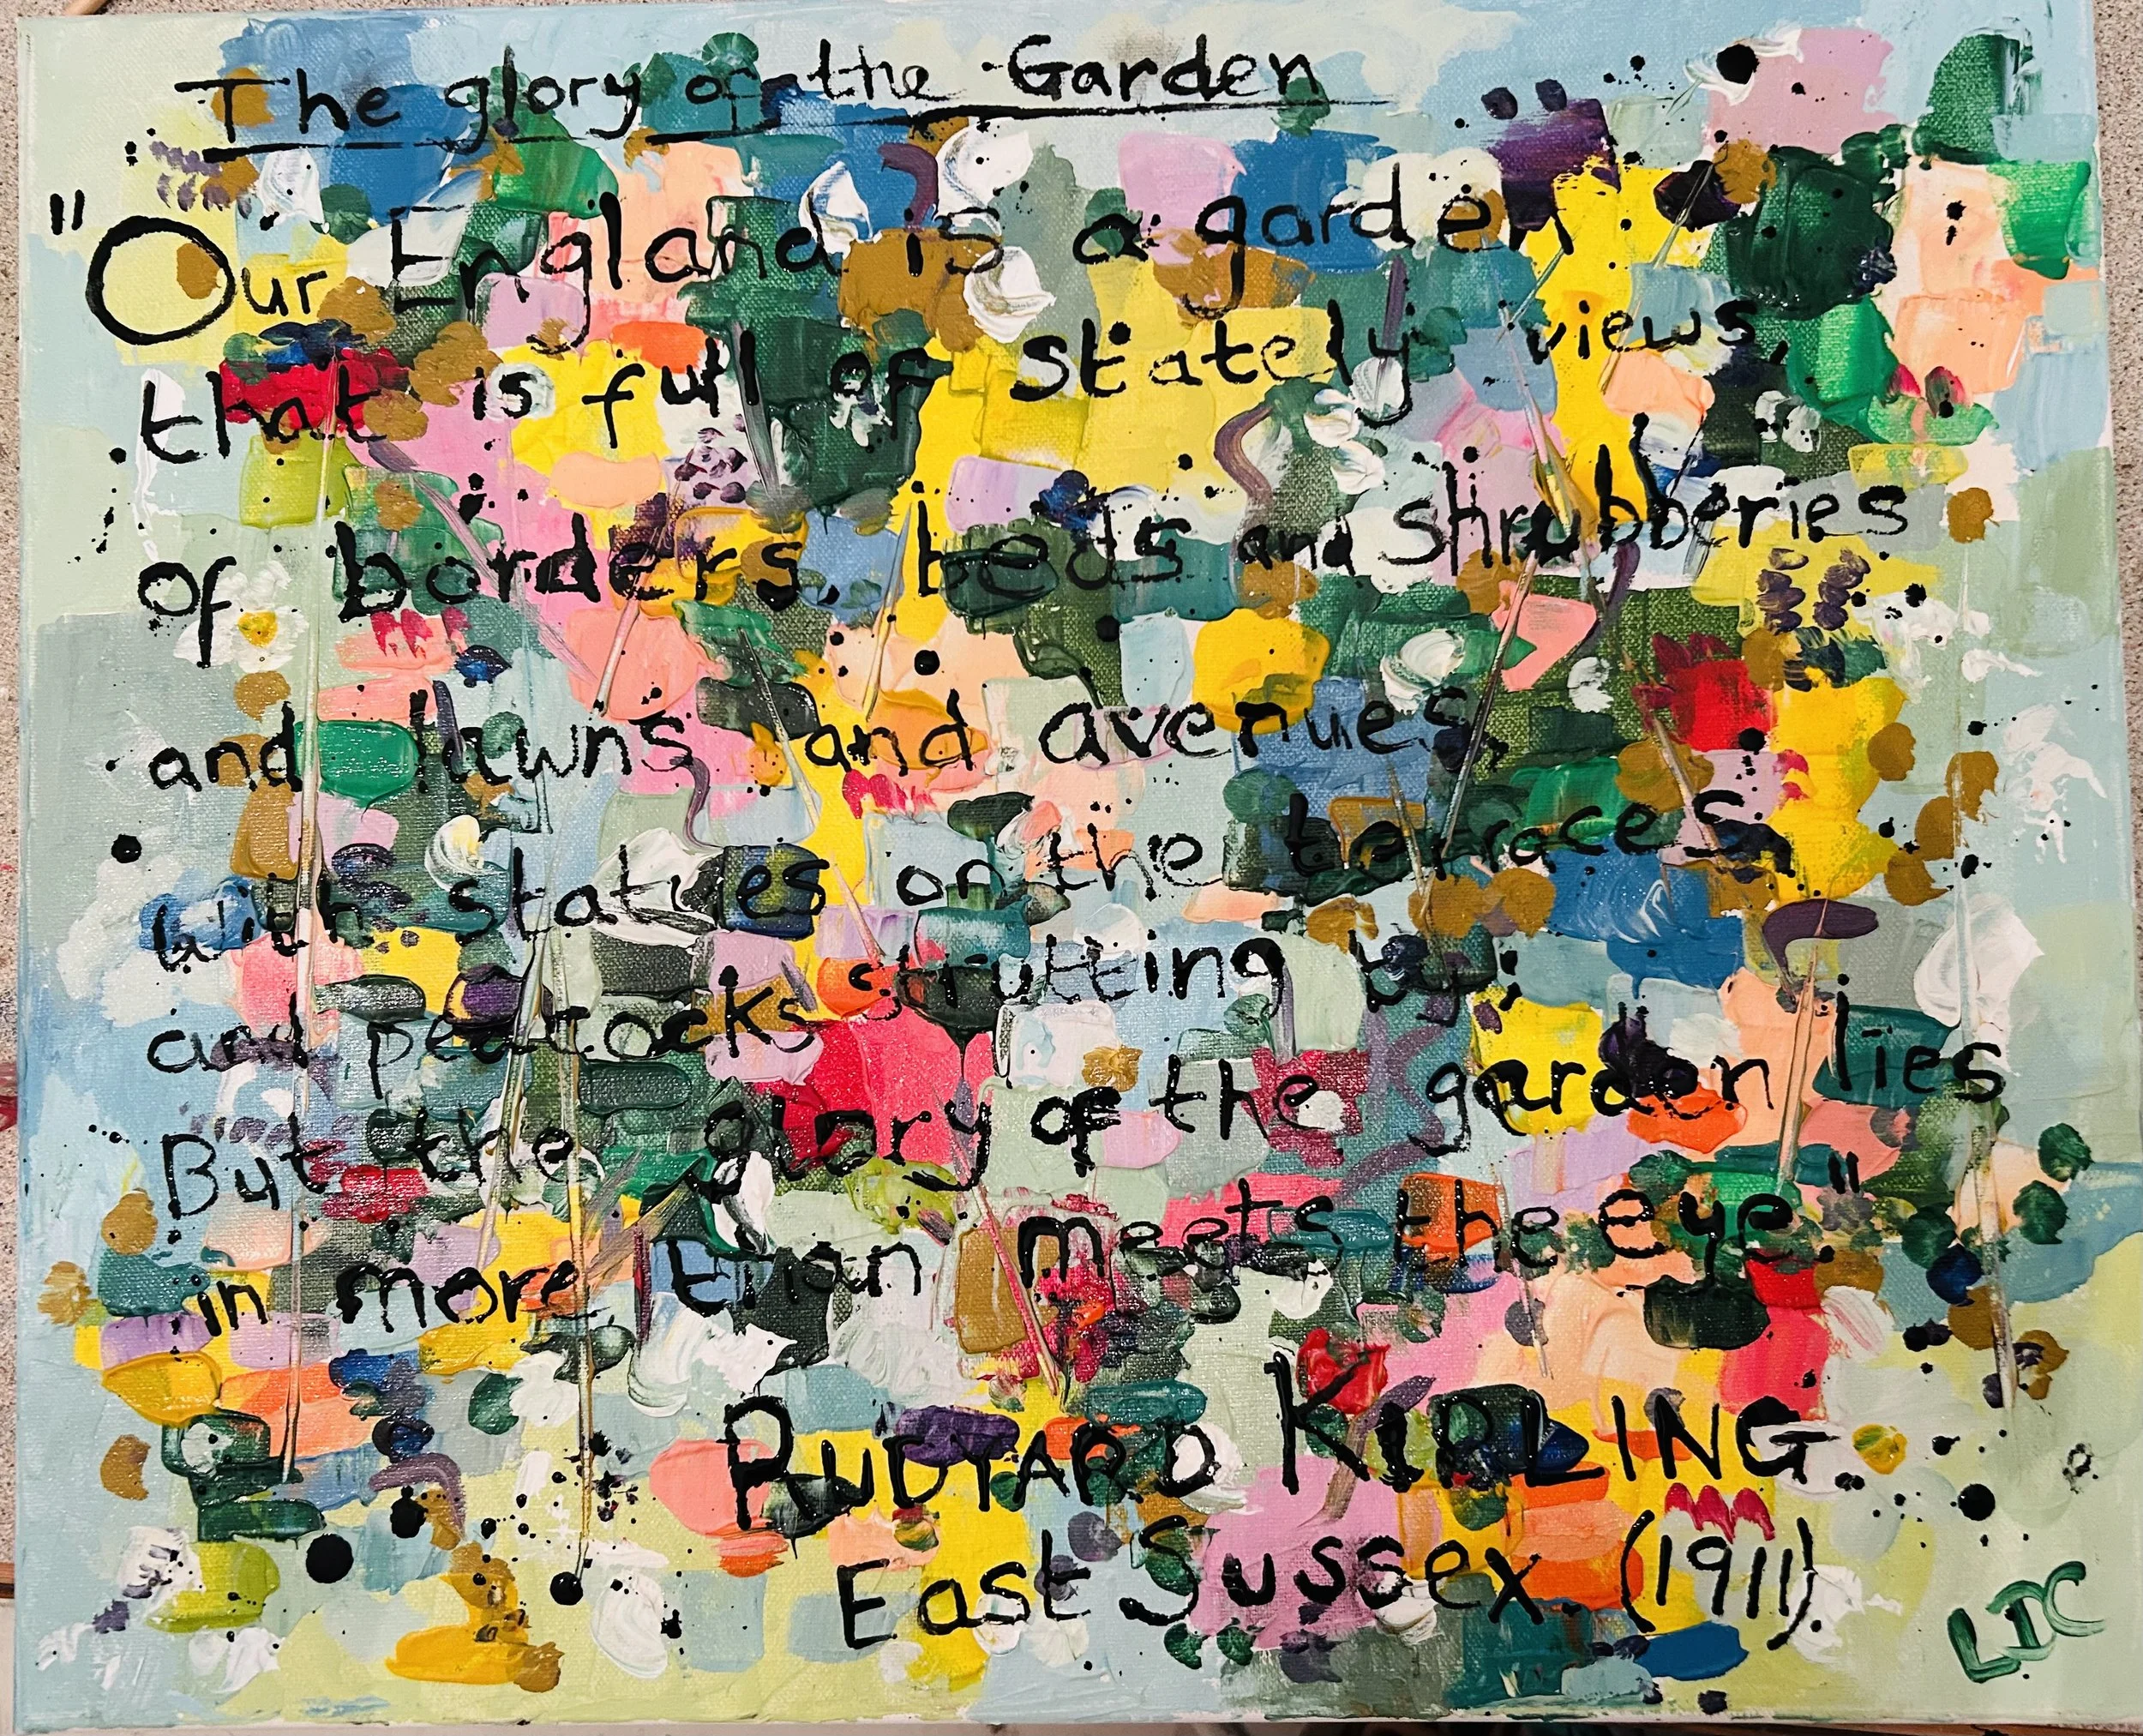 The glory of the Garden
"Our England is a garden
that is full of stately views,
of borders, beds and shrubberies
and lawns and avenues,
with statues on the terraces,
and peacocks strutting by;
But the glory of the garden lies
in more than meets the eye."
RUDYARD KIPLING.
East Sussex. (1911).
LDC